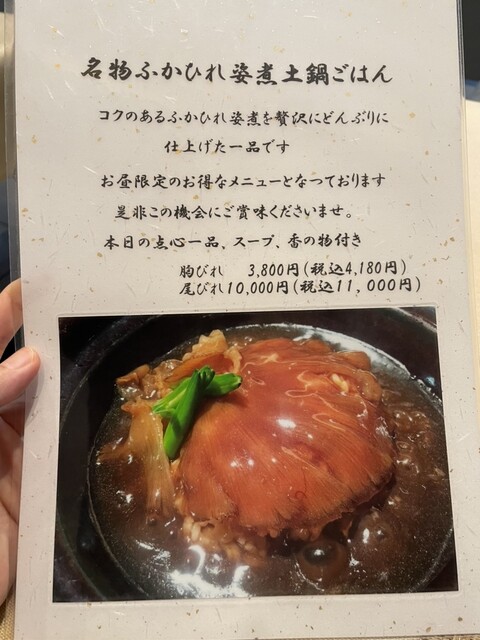 名物ふかひれ姿煮土鍋ごはん
コクのあるふかひれ姿煮を贅沢にどんぶりに
仕上げた一品です
お昼限定のお得なメニューとなっております
是非この機会にご賞味くださいませ。
本日の点心一品、スープ、香の物付き
胸びれ 3,800円(税込4,180円)
尾びれ10,000円(税込11,000円)